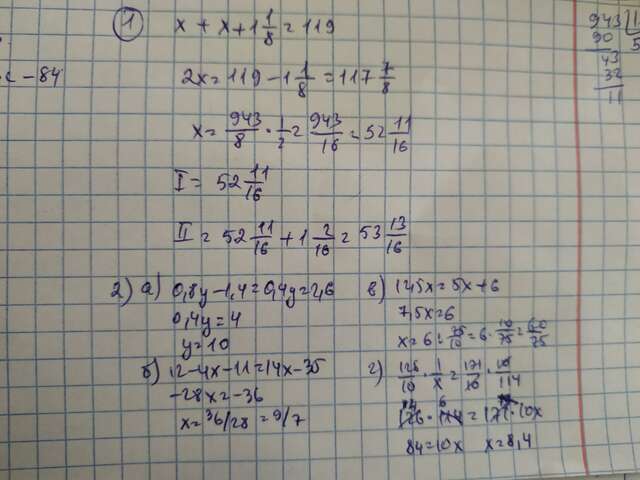 1 x + x + 1 1/8 = 119
2x = 119 - 1 1/8 = 117 7/8
x = 943/8 · 1/2 = 943/16 = 52 11/16
I = 52 11/16
II = 52 11/16 + 1 2/16 = 53 13/16
2) а) 0,8y - 1,4 = 0,4y = 2,6
0,4y = 4
y = 10
б) 12 - 4x - 11 = 14x - 35
-28x = -36
x = 36/28 = 9/7
в) 12,5x = 5x + 6
7,5x = 6
x = 6 : 75/10 = 6 · 10/75 = 60/75
г) 126/10 · 1/x = 171/10 · 10/114
84 = 10x x = 8,4
- 84
943
90
43
32
11